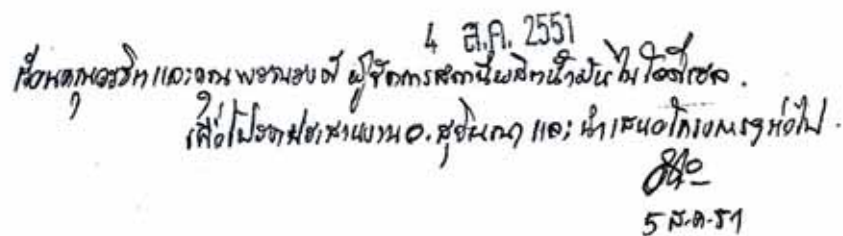 4 ส.ค. 2551
เรียนคุณวรชิตและคุณ ผู้จัดการสถานีผลิตน้ำมันไบโอดีเซล.
เพื่อโปรดประสานงาน อ. สุจินณา และ นำเสนอโครงการฯ ต่อไป
5 ส.ค. 51